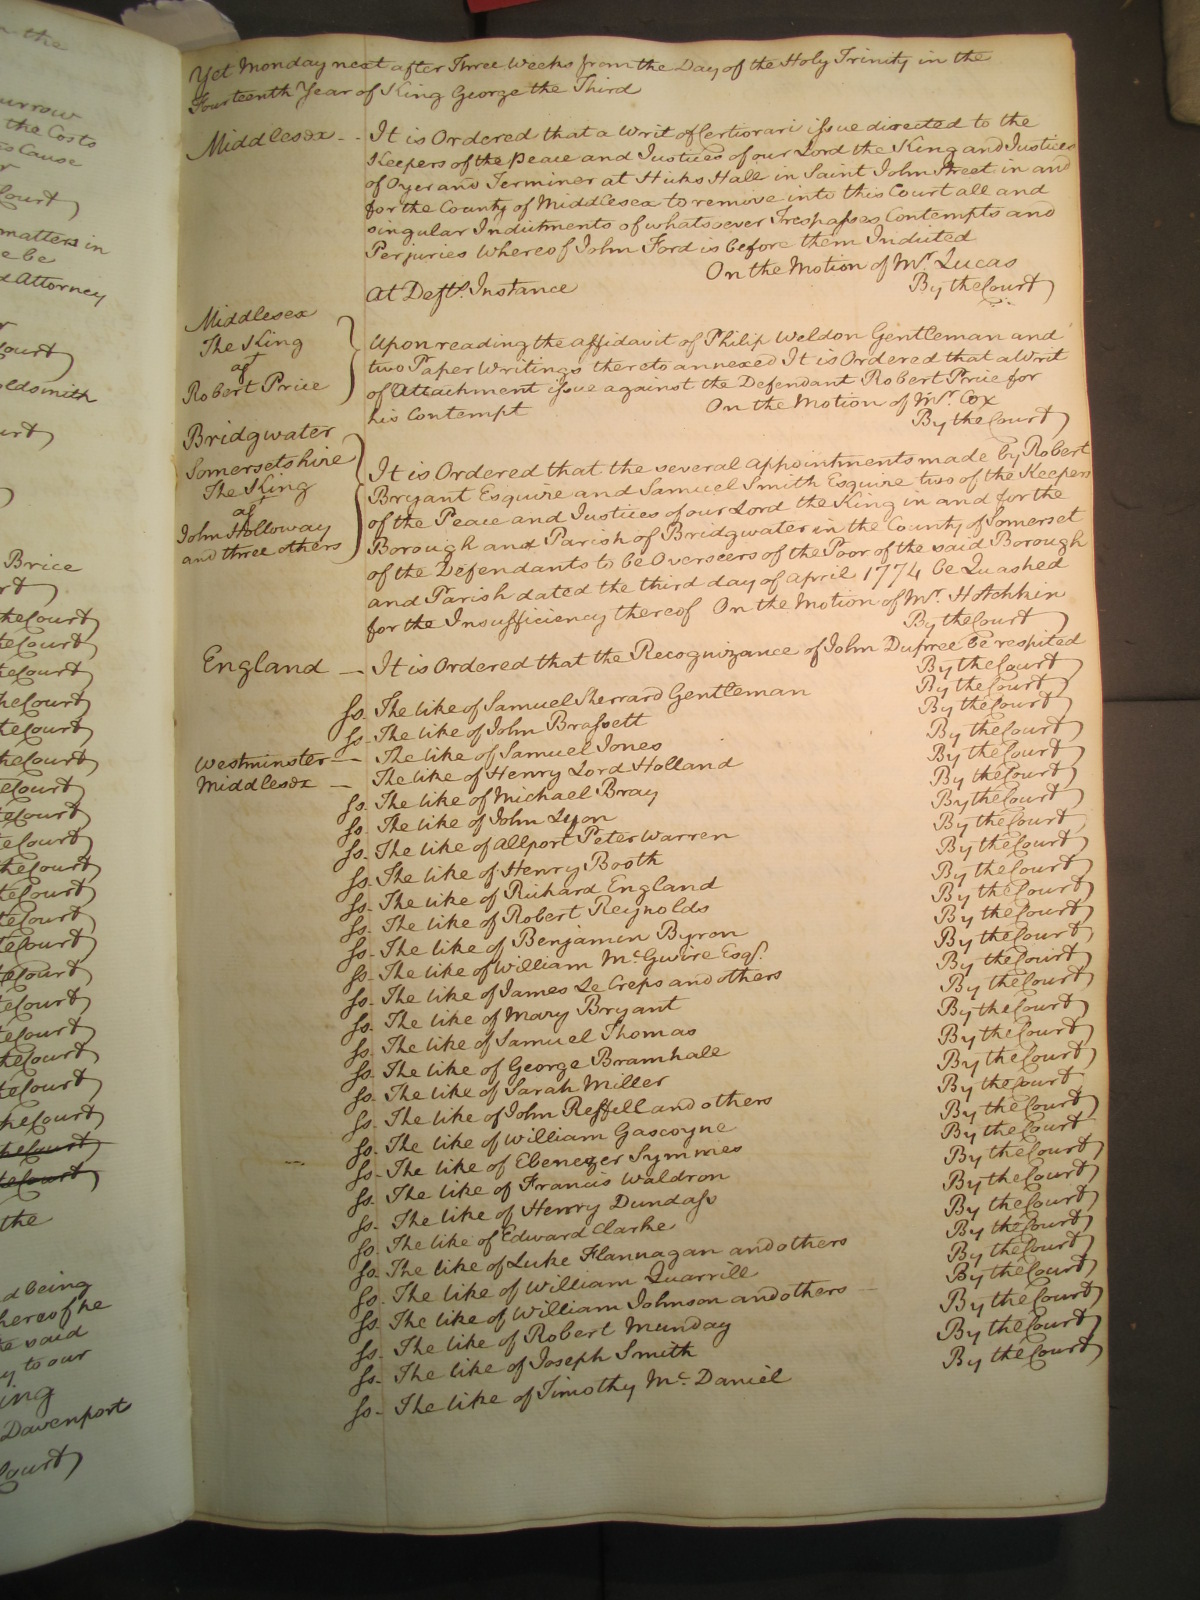 Yet Monday next after Three Weeks from the Day of the Holy Trinity in the
Fourteenth Year of King George the Third
Middlesex - - It is Ordered that a Writ of Certiorari issue directed to the
Keepers of the Peace and Justices of our Lord the King and Justices
of Oyer and Terminer at Hicks Hall in Saint John Street in and
for the County of Middlesex to remove into this Court all and
singular Indictments of whatsoever Trespasses Contempts and
Perjuries Whereof John Ford is before them Indicted
On the Motion of Mr. Lucas
At Defts. Instance By the Court
Middlesex
The King
agt
Robert Price
Upon reading the affidavit of Philip Weldon Gentleman and
two Paper Writings thereto annexed It is Ordered that a Writ
of Attachment issue against the Defendant Robert Price for
his Contempt On the Motion of Mr. Cox
By the Court
Bridgwater
Somersetshire
The King
agt
John Holloway
and three others
It is Ordered that the several appointments made by Robert
Bryant Esquire and Samuel Smith Esquire two of the Keepers
of the Peace and Justices of our Lord the King in and for the
Borough and Parish of Bridgwater in the County of Somerset
of the Defendants to be Overseers of the Poor of the said Borough
and Parish dated the third day of April 1774 be Quashed
for the Insufficiency thereof On the Motion of Mr. Hotchkin
By the Court
England — It is Ordered that the Recognizance of John Dupree be respited
By the Court
ss. The like of Samuel Sherrard Gentleman By the Court
ss. The like of John Brassett By the Court
Westminster — The like of Samuel Jones By the Court
Middlesex — The like of Henry Lord Holland By the Court
ss. The like of Michael Bray By the Court
ss. The like of John Lyon By the Court
ss. The like of Allport Peter Warren By the Court
ss. The like of Henry Booth By the Court
ss. The like of Richard England By the Court
ss. The like of Robert Reynolds By the Court
ss. The like of Benjamin Byron By the Court
ss. The like of William McGwire Esqr. By the Court
ss. The like of James Le Creps and others By the Court
ss. The like of Mary Bryant By the Court
ss. The like of Samuel Thomas By the Court
ss. The like of George Bramhale By the Court
ss. The like of Sarah Miller By the Court
ss. The like of John Reffell and others By the Court
ss. The like of William Gascoyne By the Court
ss. The like of Ebenezer Symmes By the Court
ss. The like of Francis Waldron By the Court
ss. The like of Henry Dundass By the Court
ss. The like of Edward Clarke By the Court
ss. The like of Luke Flannagan and others By the Court
ss. The like of William Quarrill By the Court
ss. The like of William Johnson and others By the Court
ss. The like of Robert Munday By the Court
ss. The like of Joseph Smith By the Court
ss. The like of Timothy Mc. Daniel By the Court